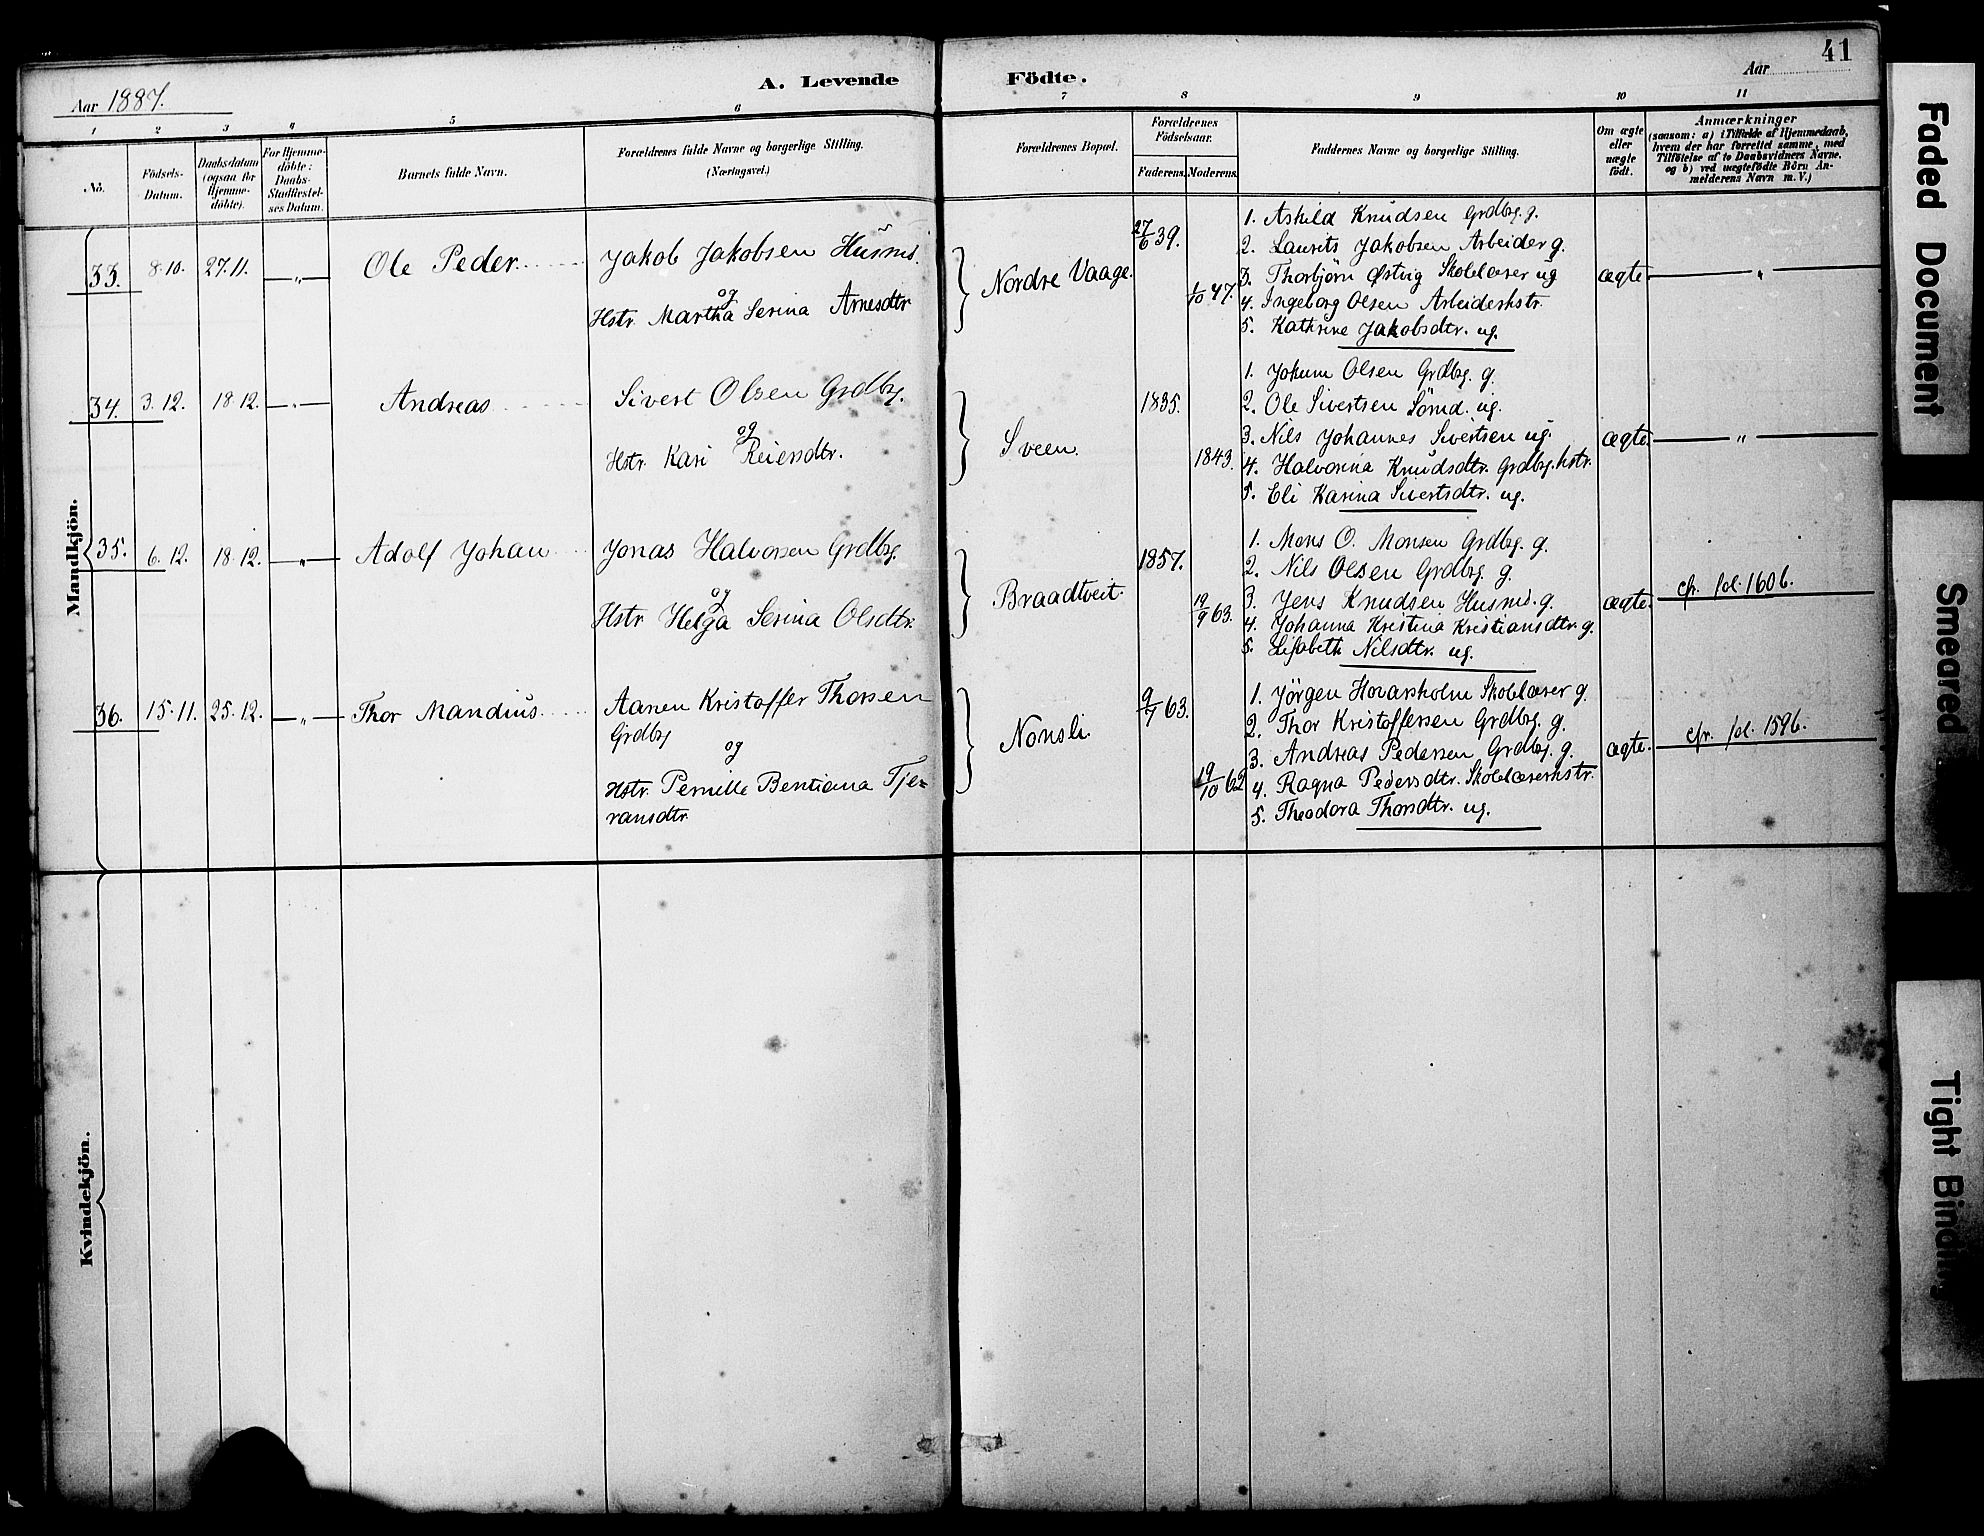 41
Aar 1887.
A. Levende Födte.
Aar
1 2 3 4 5 6 7 8 9 10 11
No.
Födsels-Datum.
Daabsdatum (ogsaa for Hjemme-döbte).
For Hjemme-döbte: Daabs-Stadfæstel-ses Datum.
Barnets fulde Navn.
Forældrenes fulde Navne og borgerlige Stilling.
(Næringsvei.)
Forældrenes Bopæl.
Forældrenes Födselsaar.
Faderens. Moderens.
Faddernes Navne og borgerlige Stilling.
Om ægte eller uægte født.
Anmærkninger
(saasom: a) i Tilfælde af Hjemmedaab,
hvem der har forrettet samme, med
Tilføielse af to Daabsvidners Navne,
og b) ved uægtefödte Börn An-
melderens Navn m. V.)
Mandkjön.
33. 8.10. 27.11. „ Ole Peder
Jakob Jakobsen Husmd.
og
Hstr. Martha Serina Arnesdtr
Nordre Vaage.
27/6 39.
1/10 47.
1. Askild Knudsen Grdbrg. g.
2. Laurits Jakobsen Arbeider g.
3. Thorbjörn Østvig Skolelærer ug
4. Ingeborg Olsen Arbeiderhstr.
5. Kathrine Jakobsdtr. ug.
ægte „
34. 3.12. 18.12. „ Andreas
Sivert Olsen Grdbrg.
og
Hstr. Kari Reiersdtr.
Sveen.
1835.
1843.
1. Jokum Olsen Grdbrg. g.
2. Ole Sivertsen Sömd. ug.
3. Nils Johannes Sivertsen ug.
4. Halvorina Knudsdtr. Grdbrg.hstr.
5. Eli Karina Sivertsdtr. ug.
ægte „
35. 6.12. 18.12. „ Adolf Johan
Jonas Halvorsen Grdbrg.
og
Hstr Helga Serina Olsdtr.
Braadtveit.
1857.
19/9 63.
1. Mons O. Monsen Grdbrg. g.
2. Nils Olsen Grdbrg. g.
3. Jens Knudsen Husmd. g.
4. Johanna Kristina Kristiansdtr. g.
5. Lisabeth Nilsdtr. ug.
ægte. cfr. fol. 160 6.
36. 15.11. 25.12. „ Thor Mandius
Aanen Kristoffer Thorsen
Grdbrg
og
Hstr. Pernille Bentiana Tje=
ransdtr.
Nonsli.
9/7 63.
19/10 62
1. Jörgen Hovarsholm Skolelærer g.
2. Thor Kristoffersen Grdbrg. g.
3. Andreas Pedersen Grdbrg. g.
4. Ragna Pedersdtr. Skolelærerhstr.
5. Theodora Thorsdtr. ug.
ægte. cfr. fol. 159 6.
Kvindekjön.
Faded Document
Smeared
Tight Binding